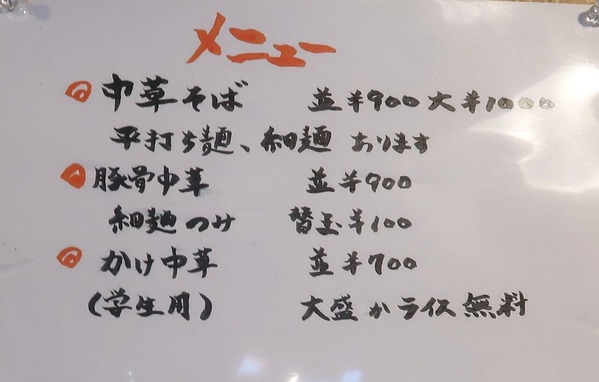 メニュー
中華そば 並¥900 大¥1000
平打ち麺、細麺 あります
豚骨中華 並¥900
細麺のみ 替玉¥100
かけ中華 並¥700
(学生用) 大盛かライス無料